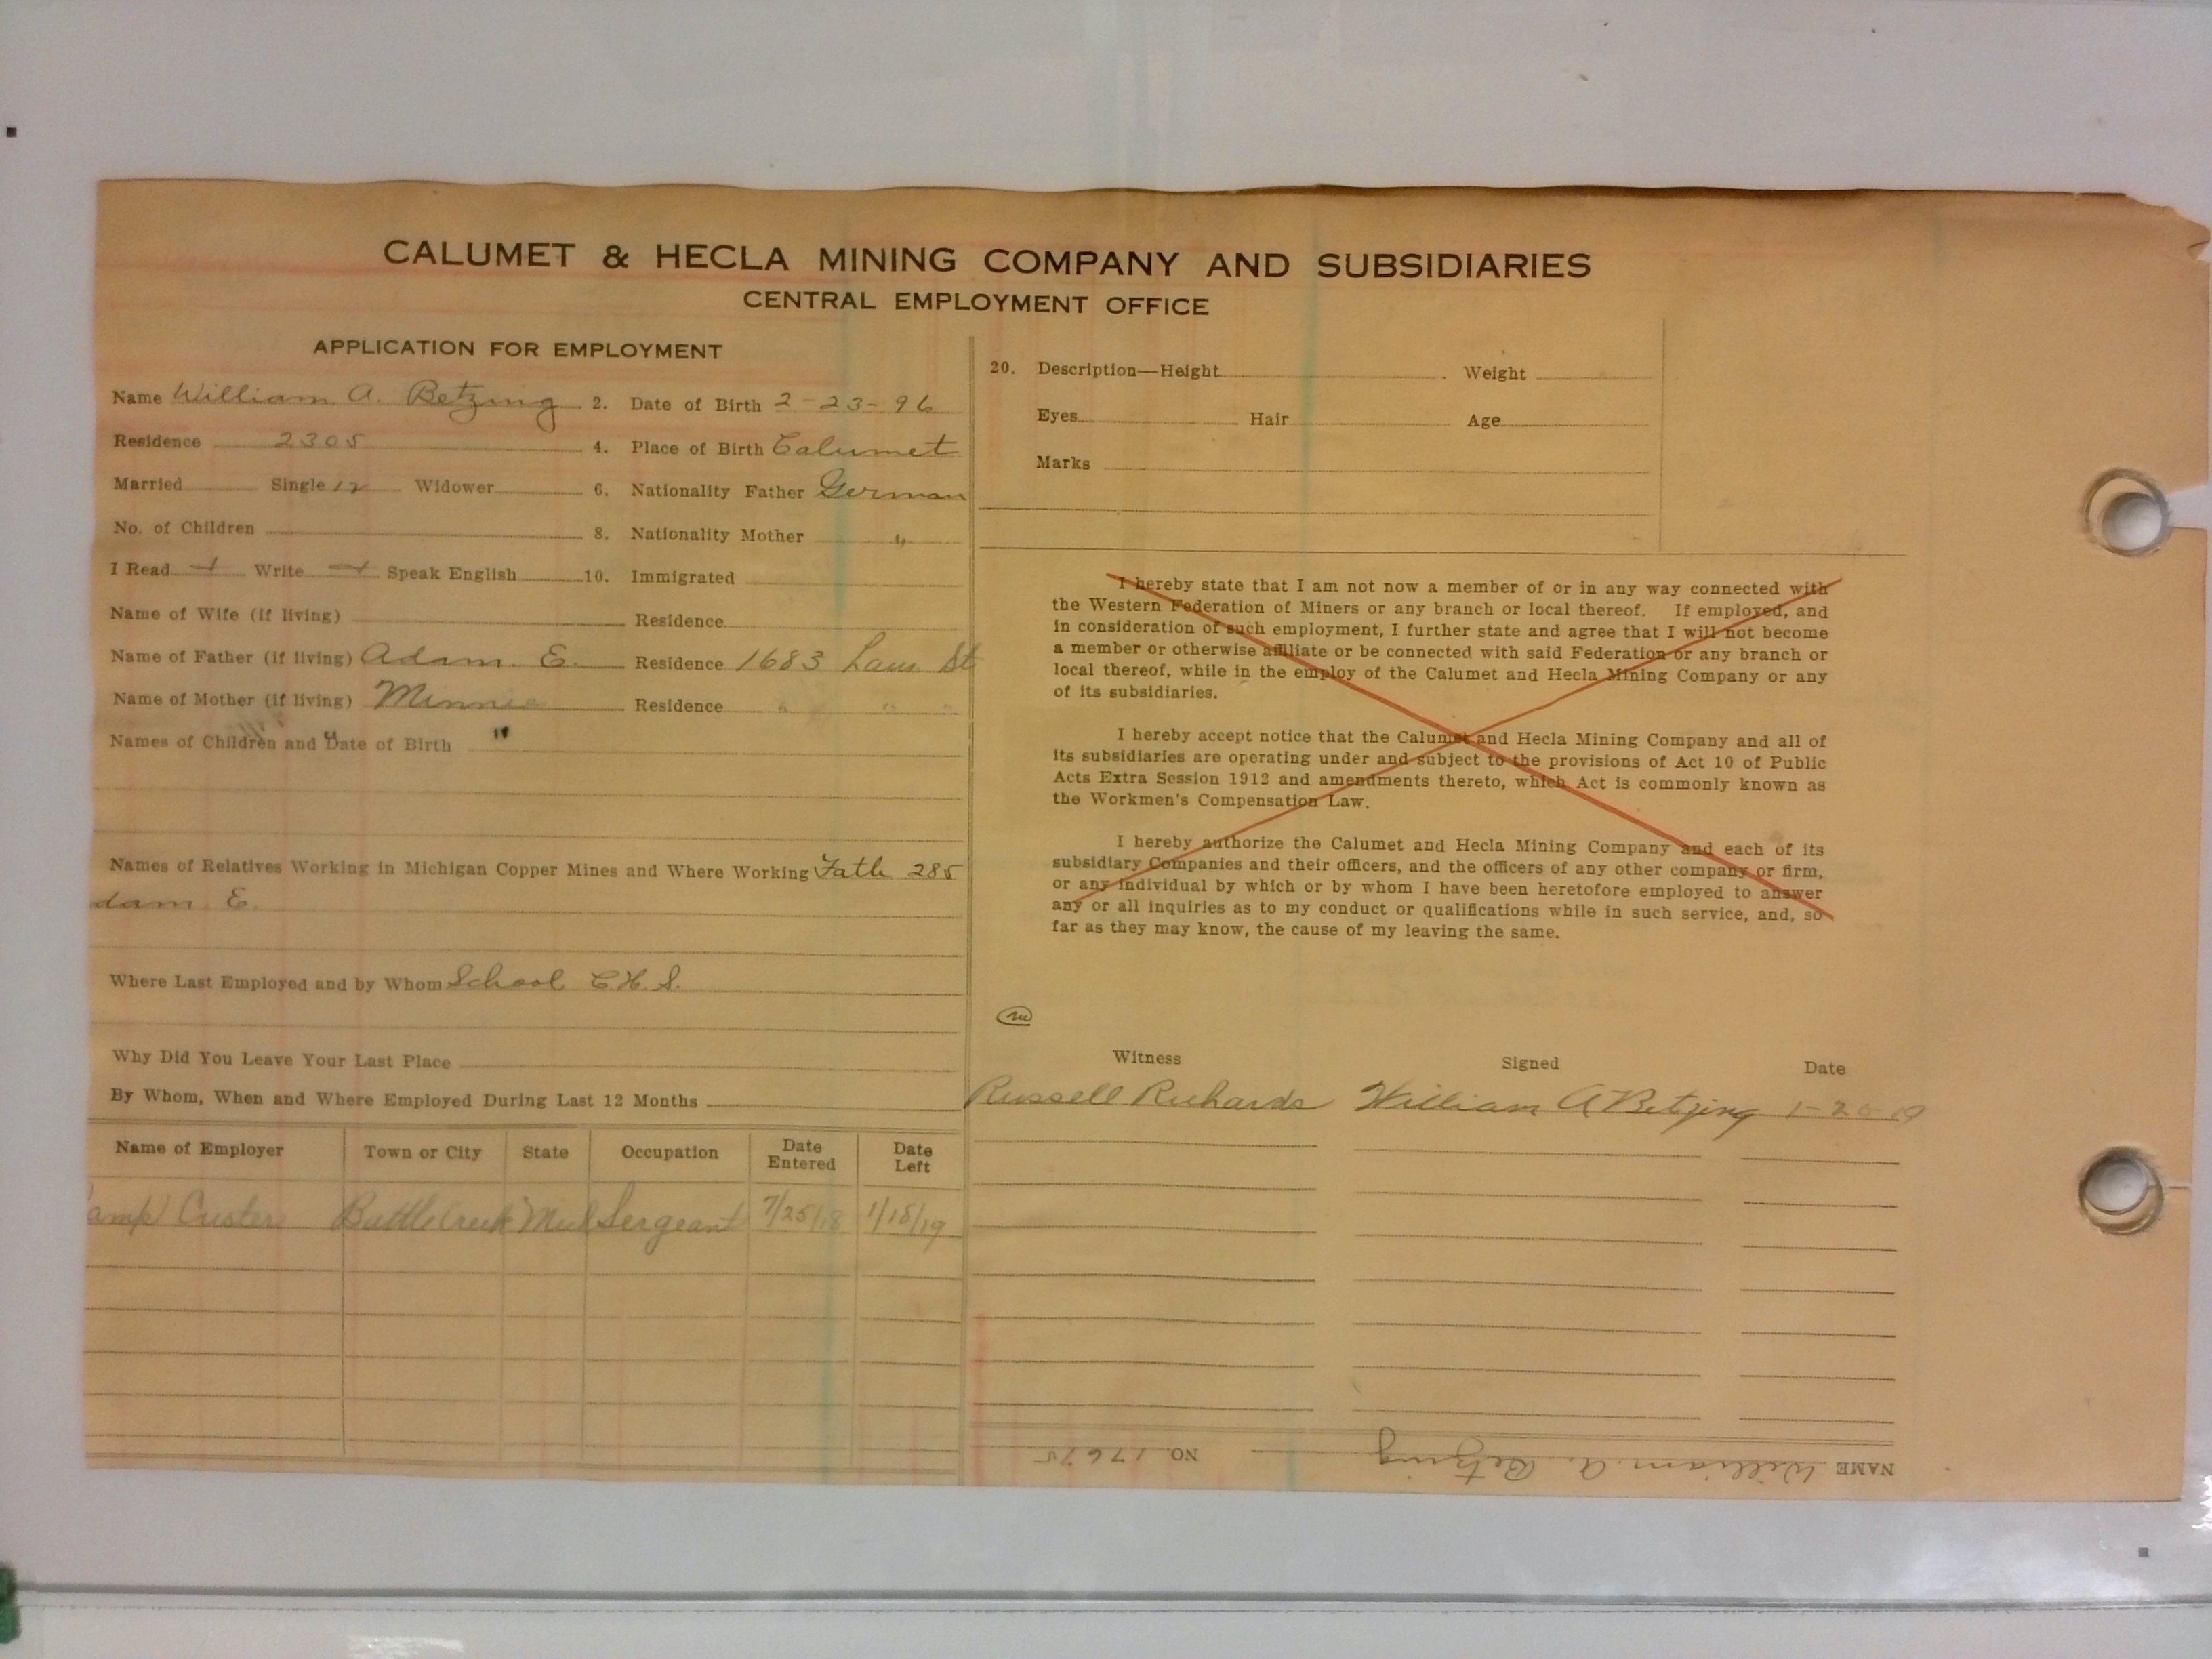 CALUMET & HECLA MINING COMPANY AND SUBSIDIARIES
CENTRAL EMPLOYMENT OFFICE
APPLICATION FOR EMPLOYMENT
Name William A. Betzing 2. Date of Birth 2-23-96
Residence 2305 4. Place of Birth Calumet
Married Single Widower 6. Nationality Father German
No. of Children 8. Nationality Mother "
I Read Write Speak English 10. Immigrated
Name of Wife (if living) Residence
Name of Father (if living) Adam E. Residence 1683 Laur. St
Name of Mother (if living) Minnie Residence " " "
Names of Children and Date of Birth
Names of Relatives Working in Michigan Copper Mines and Where Working Fath 285
dam E.
Where Last Employed and by Whom School C.H.S.
Why Did You Leave Your Last Place
By Whom, When and Where Employed During Last 12 Months
Name of Employer Town or City State Occupation Date Entered Date Left
amp Custer Battle Creek Mich Sergeant 7/25/18 1/18/19
20. Description—Height Weight
Eyes Hair Age
Marks
I hereby state that I am not now a member of or in any way connected with
the Western Federation of Miners or any branch or local thereof. If employed, and
in consideration of such employment, I further state and agree that I will not become
a member or otherwise affiliate or be connected with said Federation or any branch or
local thereof, while in the employ of the Calumet and Hecla Mining Company or any
of its subsidiaries.
I hereby accept notice that the Calumet and Hecla Mining Company and all of
its subsidiaries are operating under and subject to the provisions of Act 10 of Public
Acts Extra Session 1912 and amendments thereto, which Act is commonly known as
the Workmen's Compensation Law.
I hereby authorize the Calumet and Hecla Mining Company and each of its
subsidiary Companies and their officers, and the officers of any other company or firm,
or any individual by which or by whom I have been heretofore employed to answer
any or all inquiries as to my conduct or qualifications while in such service, and, so
far as they may know, the cause of my leaving the same.
Witness Signed Date
Russell Richards William A Betzing 1-20-19
NAME William A. Betzing NO. 17675